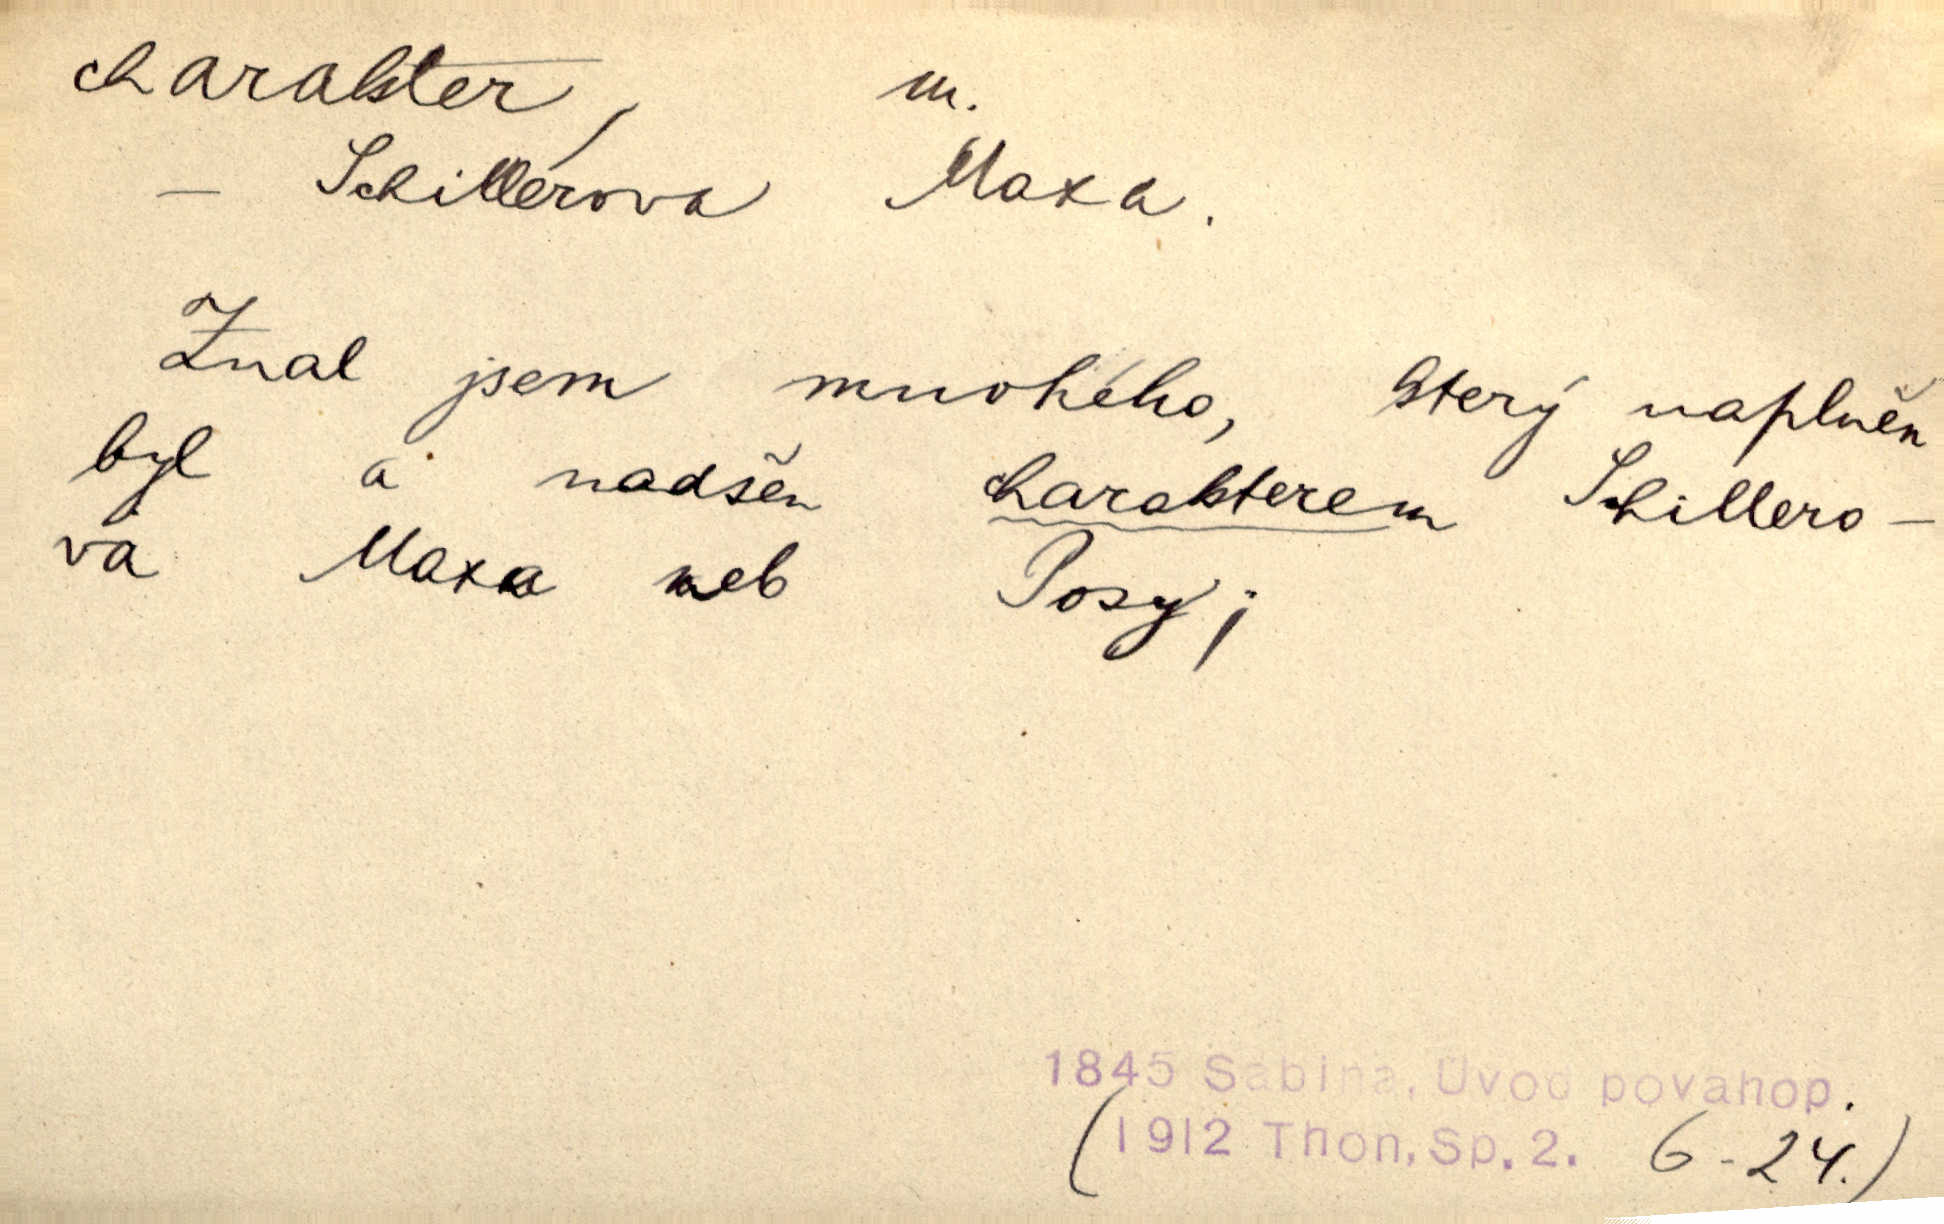 charakter, m.
— Schillerova Maxa.
Znal jsem mnohého, který naplněn
byl a nadšen charakterem Schillero-
va Maxa neb Posy;
1845 Sabina, Úvod povahop.
(1912 Thon, Sp. 2. 6-24.)